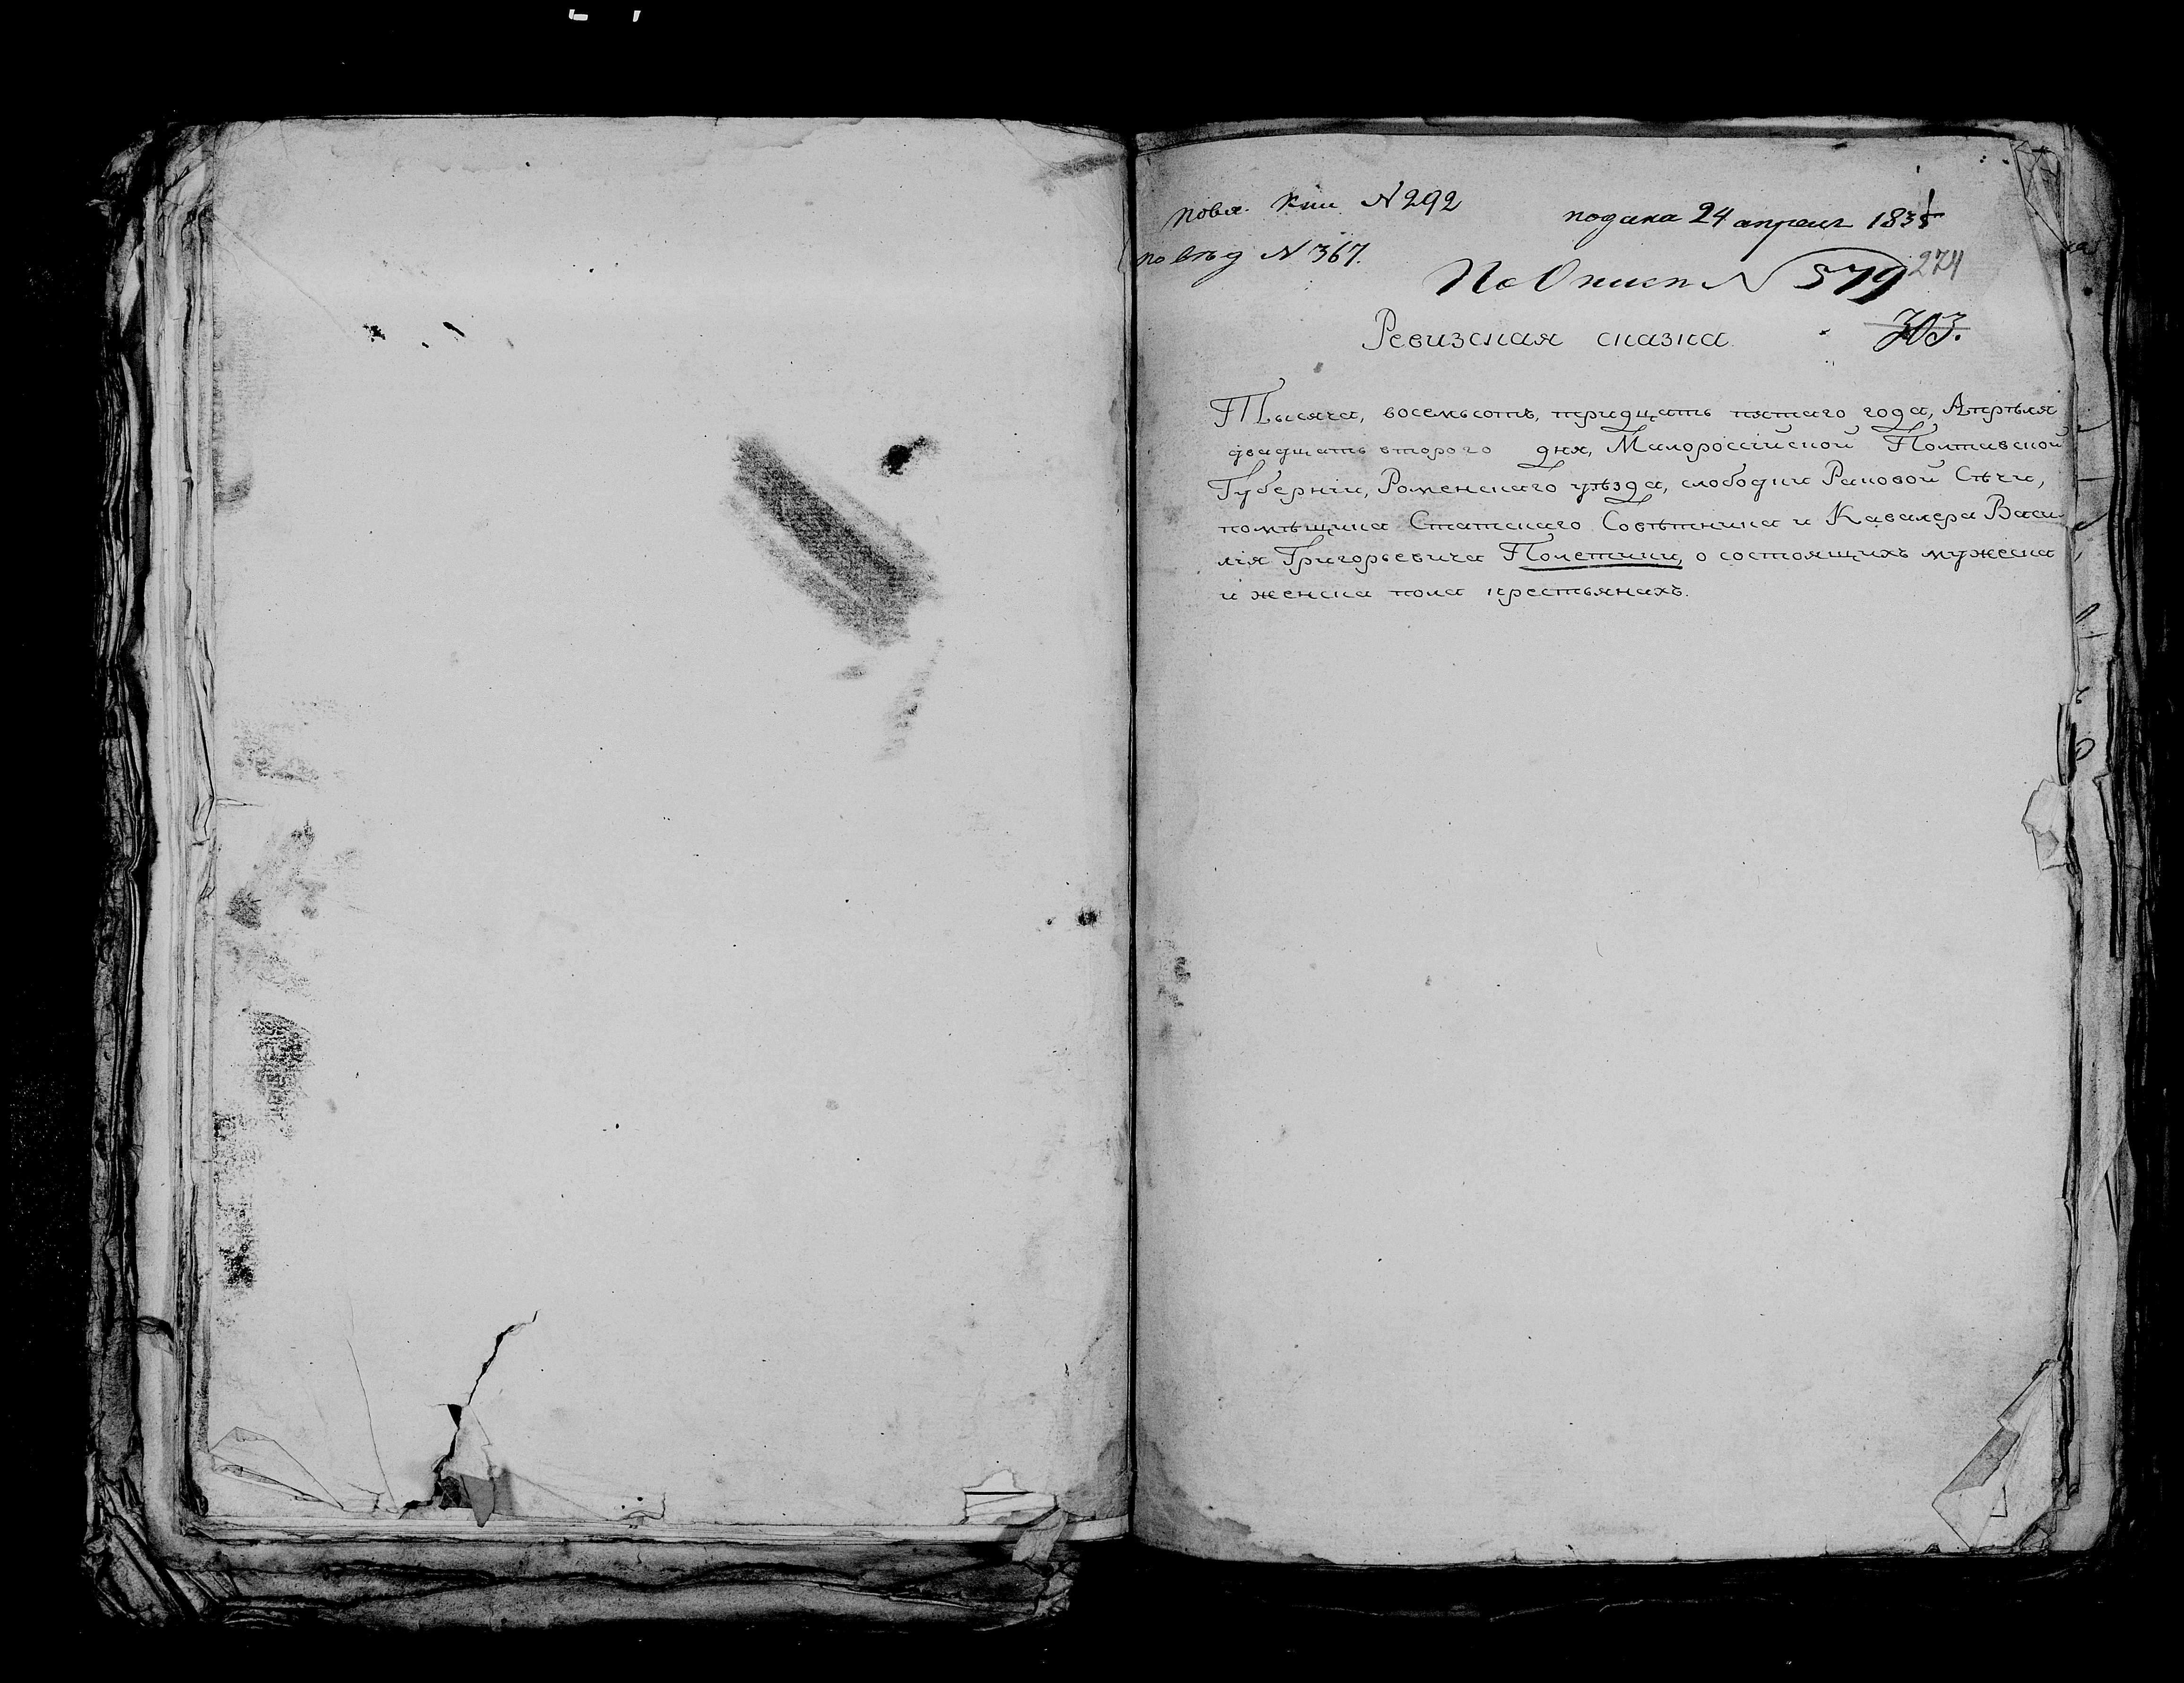 по вяз. кни. N 292
подана 24 апреля 1835
по вѣд N 367.
По Описи N 579
274
Ревизская сказка
303.
Тысяча, восемьсотъ, тридцать пятаго года, Апрѣля
двадцать второго дня, Малороссійской Полтавской
Губерніи, Роменскаго уѣзда, слободки Раковой Сѣчи,
помѣщика Статскаго Совѣтника и Кавалера Васи-
лія Григорьевича Полетики, о состоящихъ мужеска
и женска пола крестьянахъ.